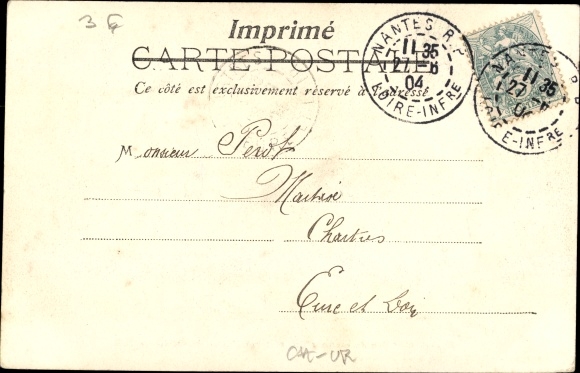 3 G
Imprimé
CARTE POSTALE
Ce côté est exclusivement réservé à l'adresse
NANTES R.P.
11 35
27 - 6
04
LOIRE-INFRE
NANTES
11 35
27
04
E-INFRE
Monsieur
Chartres
Eure et Loir
CHA-UR